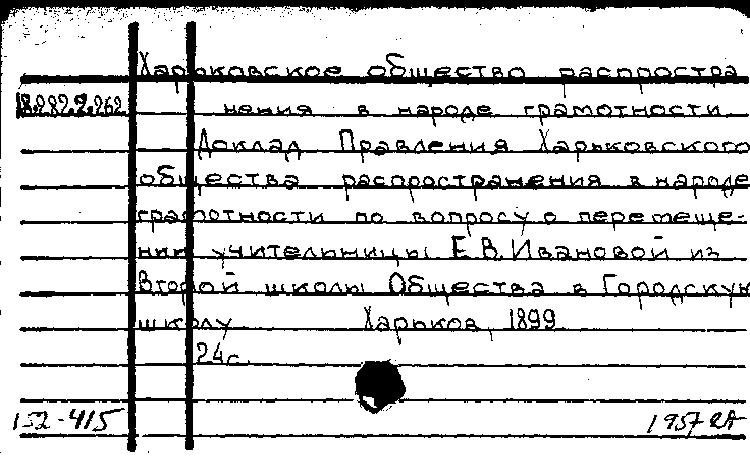 Харьковское общество распростра
18.282.2.262 нения в народе грамотности
Доклад Правления Харьковского
общества распространения в народе
грамотности по вопросу о перемеще-
нии учительницы Е.В. Ивановой из
Второй школы Общества в Городскую
школу Харьков, 1899
24с.
152-415 1957